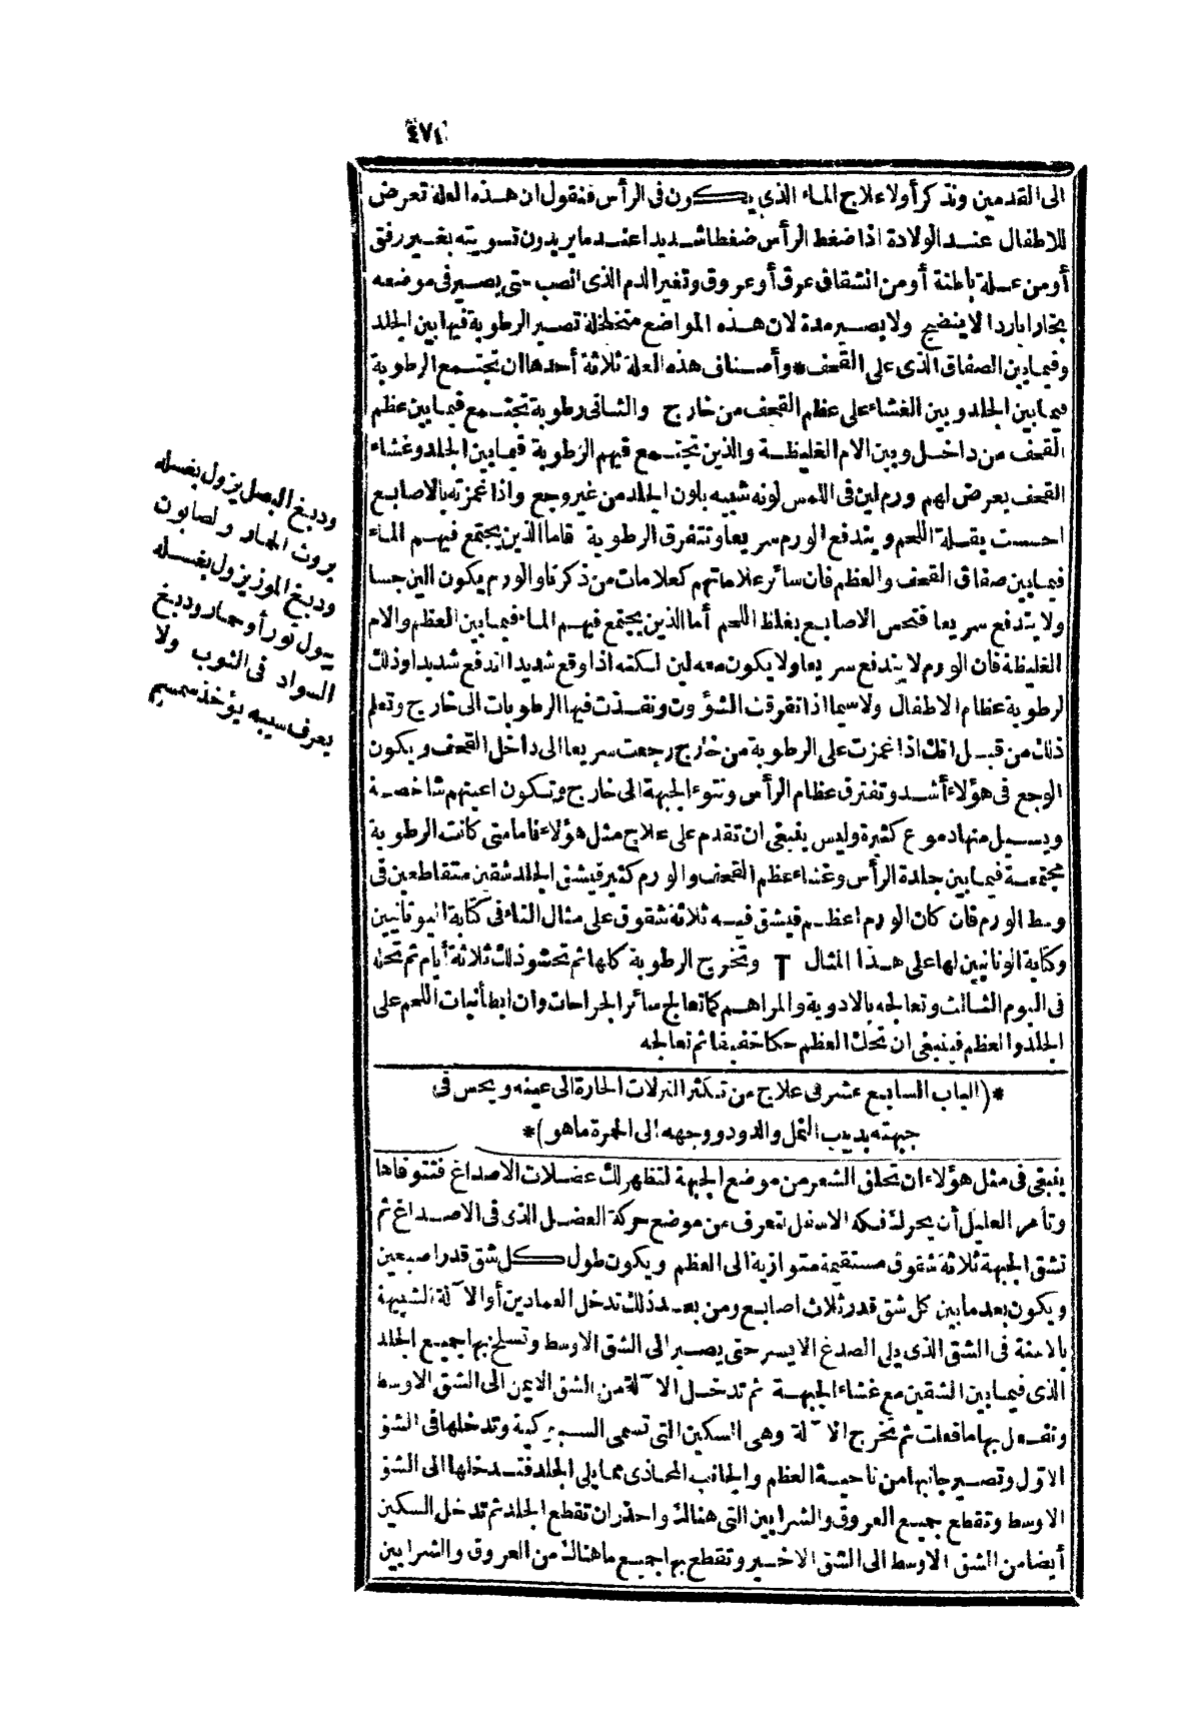 ٤٧١
الى القدمين ونذكر أولا علاج الماء الذى يكون فى الرأس فنقول ان هذه العلة تعرض
للاطفال عند الولادة اذا ضغط الرأس ضغطا شديدا عند ما يريدون تسويته بغير رفق
أو من علة باطنة أو من انشقاق عرق أو عروق وتغير الدم الذى انصب حتى يصير فى موضعه
بخارا باردا لا ينضج ولا يصير مدة لان هذه المواضع متخلخلة تصير الرطوبة فيها بين الجلد
وفيما بين الصفاق الذى على القحف * وأصناف هذه العلة ثلاثة أحدها ان تجتمع الرطوبة
فيما بين الجلد وبين الغشاء على عظم القحف من خارج والثانى رطوبة تجتمع فيما بين عظم
القحف من داخل وبين الام الغليظة والذين تجتمع فيهم الرطوبة فيما بين الجلد وغشاء
القحف يعرض لهم ورم لين فى اللمس لونه شبيه بلون الجلد من غير وجع واذا غمزته بالاصابع
احسست بقلة اللحم ويندفع الورم سريعا وتتفرق الرطوبة فاما الذين يجتمع فيهم الماء
فيما بين صفاق القحف والعظم فان سائر علاماتهم كعلامات من ذكرنا والورم يكون الين جسا
ولا يندفع سريعا فتحس الاصابع بغلظ اللحم أما الذين يجتمع فيهم الماء فيما بين العظم والام
الغليظة فان الورم لا يندفع سريعا ولا يكون معه لين لكنه اذا وقع شديدا اندفع شديدا وذلك
لرطوبة عظام الاطفال ولا سيما اذا تفرقت الشؤون ونفذت فيها الرطوبات الى خارج وتعلم
ذلك من قبل انك اذا غمزت على الرطوبة من خارج رجعت سريعا الى داخل القحف ويكون
الوجع فى هؤلاء أشد وتفترق عظام الرأس ونتوء الجبهة الى خارج وتكون اعينهم شاخصة
ويسيل منها دموع كثيرة وليس ينبغى ان تقدم على علاج مثل هؤلاء فاما متى كانت الرطوبة
مجتمعة فيما بين جلدة الرأس وغشاء عظم القحف والورم كثير فيشق الجلد شقين متقاطعين فى
وسط الورم فان كان الورم اعظم فيشق فيه ثلاثة شقوق على مثال التاء فى كتابة اليونانيين
وكتابة اليونانيين لها على هذا المثال T وتخرج الرطوبة كلها ثم تحشو ذلك ثلاثة أيام ثم تحله
فى اليوم الثالث وتعالجه بالادوية والمراهم كما تعالج سائر الجراحات وان ابطأ نبات اللحم على
الجلد والعظم فينبغى ان تحك العظم حكا خفيفا ثم تعالجه
*(الباب السابع عشر فى علاج من تكثر النزلات الحارة الى عينه ويحس فى
جبهته بدبيب النمل والدود ووجهه الى الحمرة ما هو)*
ينبغى فى مثل هؤلاء ان تحلق الشعر من موضع الجبهة لتظهر لك عضلات الاصداغ فتتوفاها
وتأمر العليل أن يحرك فكه الاسفل لتعرف من موضع حركة العضل الذى فى الاصداغ ثم
تشق الجبهة ثلاثة شقوق مستقيمة متوازية الى العظم ويكون طول كل شق قدر اصبعين
ويكون بعد ما بين كل شق قدر ثلاث اصابع ومن بعد ذلك تدخل العمادين أو الآلة الشبيهة
بالامنة فى الشق الذى يلى الصدغ الايسر حتى يصير الى الشق الاوسط وتسلخ بها جميع الجلد
الذى فيما بين الشقين مع غشاء الجبهة ثم تدخل الآلة من الشق الايمن الى الشق الاوسط
وتفعل بها ما فعلت ثم تخرج الآلة وهى السكين التى تسمى وتدخلها فى الشق
الاول وتصير جانبها من ناحية العظم والجانب المحاذى مما يلى الجلد فتدخلها الى الشق
الاوسط وتقطع جميع العروق والشرايين التى هناك واحذر ان تقطع الجلد ثم تدخل السكين
أيضا من الشق الاوسط الى الشق الاخير وتقطع بها جميع ما هناك من العروق والشرايين
ودبغ البصل يزول بغسله
بروث الحمار ولصابون
ودبغ الموز يزول بغسله
ببول ثور أو حمار ودبغ
السواد فى الثوب ولا
يعرف سببه يؤخذ سمسم